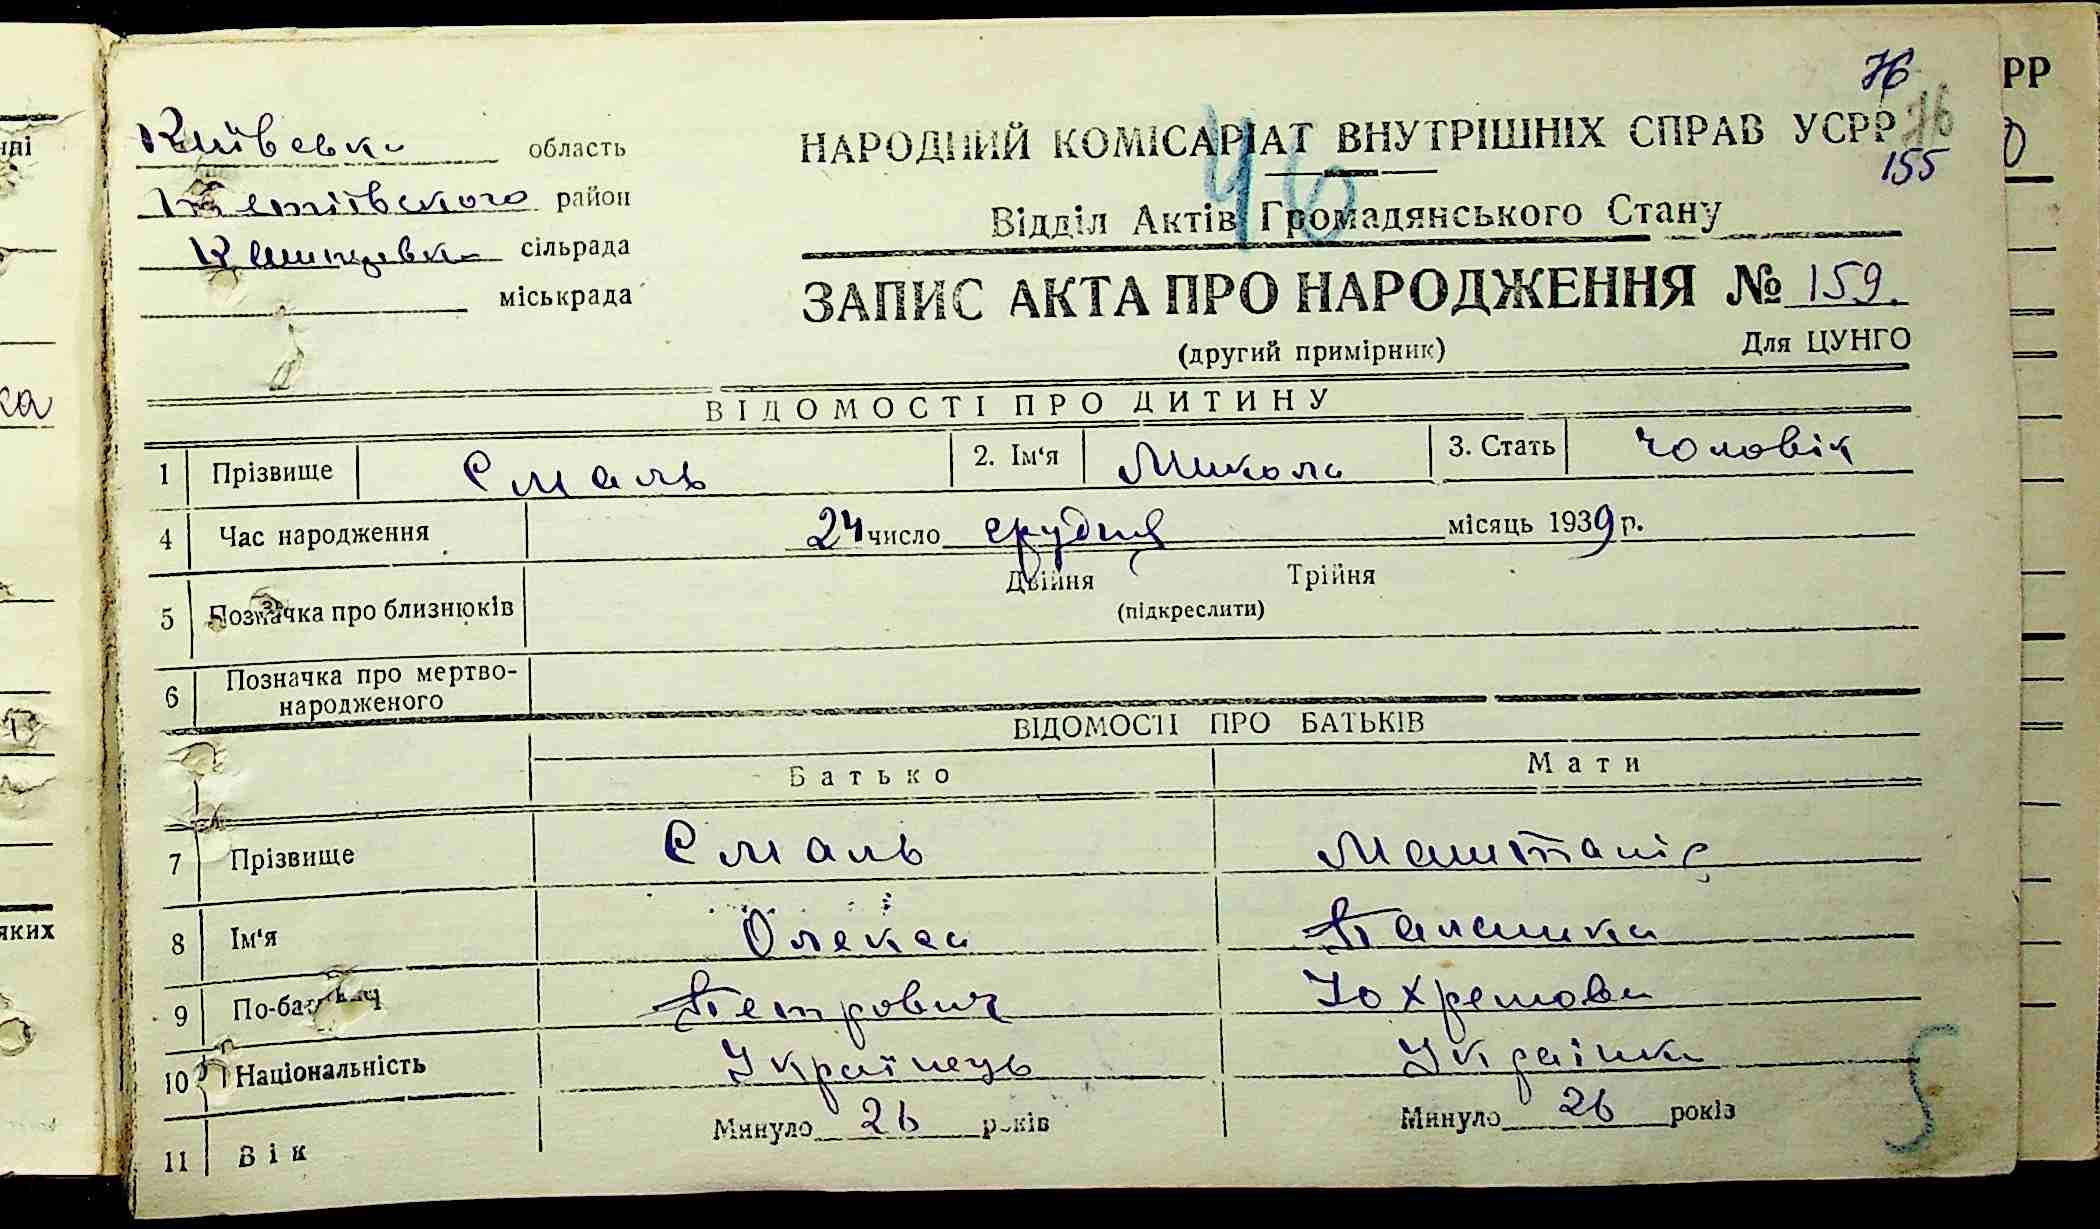 76
Київська область
НАРОДНИЙ КОМІСАРІАТ ВНУТРІШНІХ СПРАВ УСРР 76
155
46
Тетіївського район
Відділ Актів Громадянського Стану
Кашперівка сільрада
міськрада
ЗАПИС АКТА ПРО НАРОДЖЕННЯ № 159.
(другий примірник) Для ЦУНГО
ВІДОМОСТІ ПРО ДИТИНУ
1 Прізвище Смаль 2. Ім'я Микола 3. Стать чоловік
4 Час народження 24 число грудня місяць 1939 р.
5 Позначка про близнюків Двійня Трійня
(підкреслити)
6 Позначка про мертвонародженого
ВІДОМОСТІ ПРО БАТЬКІВ
Батько Мати
7 Прізвище Смаль
8 Ім'я Олекса Палашка
9 По-батькові Петрович Юхремова
10 Національність Українець Українка
11 Вік Минуло 26 років Минуло 26 років
5
РР
ка
яких